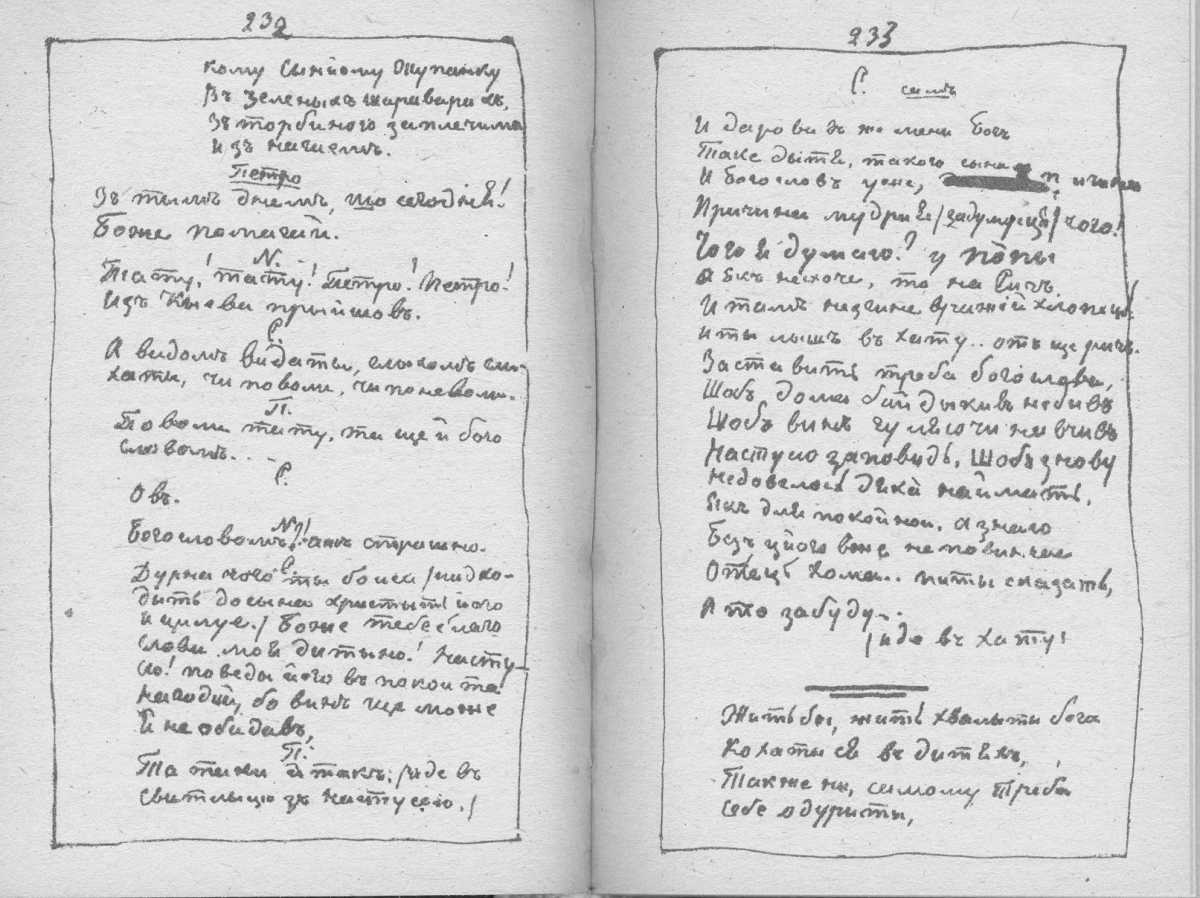 232
кому Сынёому Жупанку
Въ зеленыхъ шараварахъ,
Зъ торбиного заплечима
и зъ кашлемъ.
Петро
Зъ тымъ днемъ, що сегодня!
Боже помагай.
N.
Тату! тату! Петро! Петро!
Изъ Кыева прыйшовъ.
Р.
А видомъ видаты, слыхомъ слы-
хаты, чи поволи, чи поневоли.
П.
По воли тату, та ще й бого
словомъ...
Р.
Овъ.
N.
Богословомъ?! ажъ страшно.
Р.
Дурна чого ты боися /пидхо-
дыть до сына хрыстыть його
и цилуе./ Боже тебе благо
слови моя дытыно! Насту-
сю! поведы його въ покои та
нагодуй, бо винъ ще може
й не обидавъ,
П.
Та таки й такъ: /иде въ
свитлыцю зъ Настусею./
233
Р. самъ
И даровавъ же мени Богъ
Таке дытя, такого сына
И Богословъ уже,
Причина мудрия /задумуется/ чого!
Чого я думаю? у попы
А якъ нехоче, то на Сичъ
И тамъ незгине вчиный хлопець.
иты лышъ въ хату.. отъ ще ричъ.
Заставить треба богослова,
Щобъ дома байдыкивъ небывъ
Щобъ винъ гуляючи навчивъ
Настусю заповидь, Щобъ знову
недовелось дяка найматы,
Якъ для покойнои, а знаю
Безъ цёого вже неповинчае
Отець Хома.. питы сказать,
А то забуду..
/иде въ хату/
Жить бы, жить хвалыты бога
Кохатыся въ дитяхъ,
Также ни, самому треба
Себе одурыты,